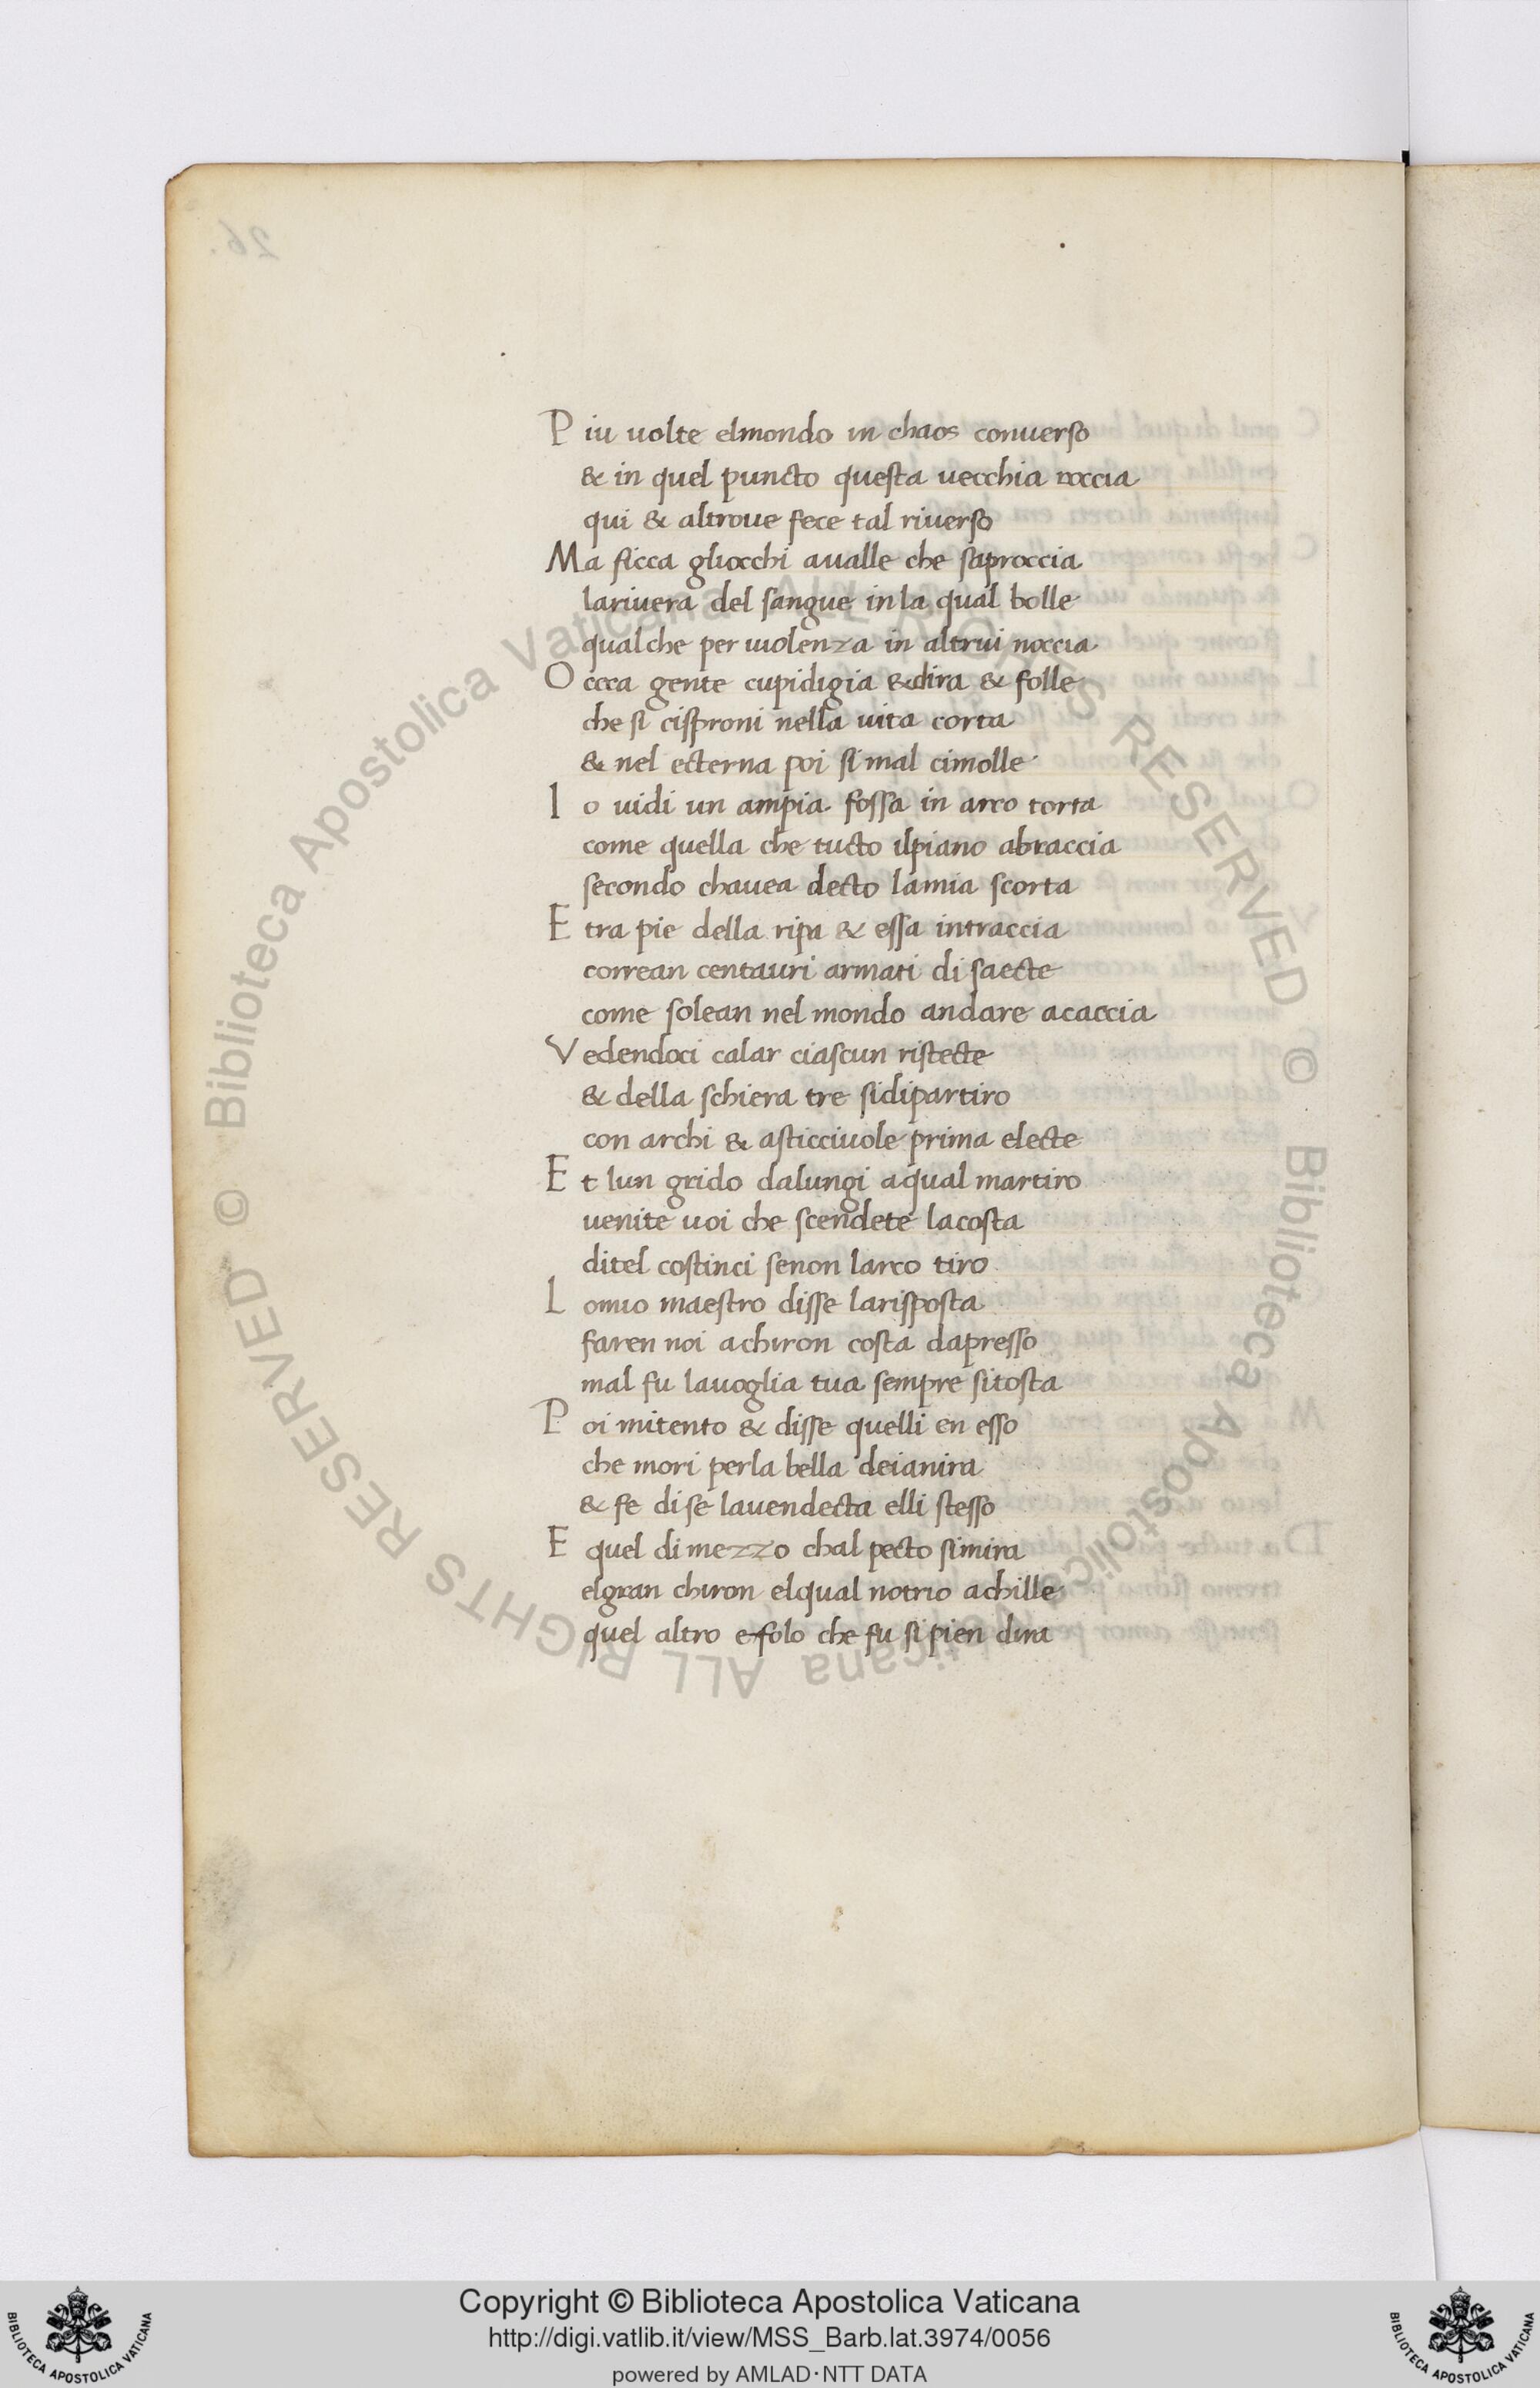 26.
Piu uolte elmondo in chaos conuerso
& in quel puncto questa uecchia roccia
qui & altroue fece tal riuerso
Ma ficca gliocchi aualle che saproccia
lariuera del sangue in la qual bolle
qualche per uiolenza in altrui noccia
O ceca gente cupidigia & dira & folle
che si cisproni nella uita corta
& nel ecterna poi si mal cimolle
Io uidi un ampia fossa in arco torta
come quella che tucto ilpiano abraccia
secondo chauea decto lamia scorta
E tra pie della ripa & essa intraccia
correan centauri armati di saecte
come solean nel mondo andare acaccia
Vedendoci calar ciascun ristecte
& della schiera tre sidipartiro
con archi & asticciuole prima electe
Et lun grido dalungi aqual martiro
uenite uoi che scendete lacosta
ditel costinci senon larco tiro
Lomio maestro disse larisposta
faren noi achiron costa dapresso
mal fu lauoglia tua sempre sitosta
Poi mitento & disse quelli en esso
che mori perla bella deianira
& fe dise lauendecta elli stesso
E quel di mezzo chal pecto simira
elgran chiron elqual notrio achille
quel altro e folo che fu si pien dira
© Biblioteca Apostolica Vaticana ALL RIGHTS RESERVED © Biblioteca Apostolica Vaticana ALL RIGHTS RESERVED
Copyright © Biblioteca Apostolica Vaticana
http://digi.vatlib.it/view/MSS_Barb.lat.3974/0056
powered by AMLAD·NTT DATA
BIBLIOTECA APOSTOLICA VATICANA
BIBLIOTECA APOSTOLICA VATICANA